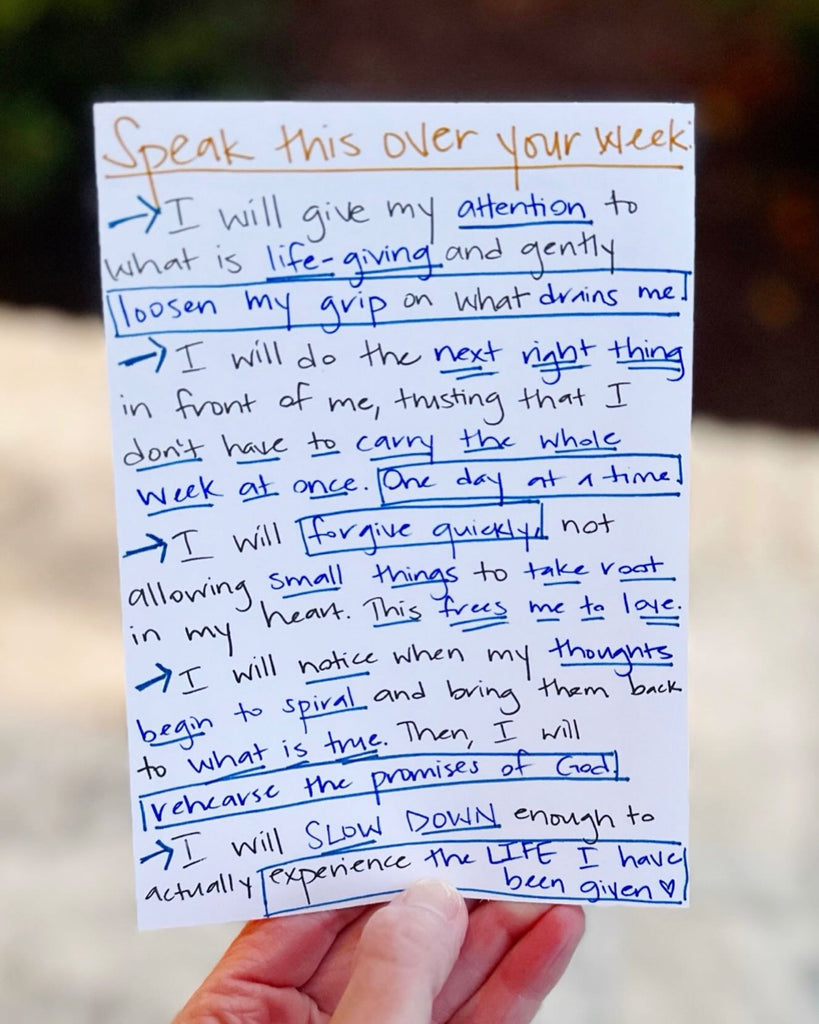 Speak this over your week:
→ I will give my attention to
what is life-giving and gently
loosen my grip on what drains me.
→ I will do the next right thing
in front of me, trusting that I
don't have to carry the whole
week at once. One day at a time.
→ I will forgive quickly, not
allowing small things to take root
in my heart. This frees me to love.
→ I will notice when my thoughts
begin to spiral and bring them back
to what is true. Then, I will
rehearse the promises of God.
→ I will SLOW DOWN enough to
actually experience the LIFE I have
been given ♡